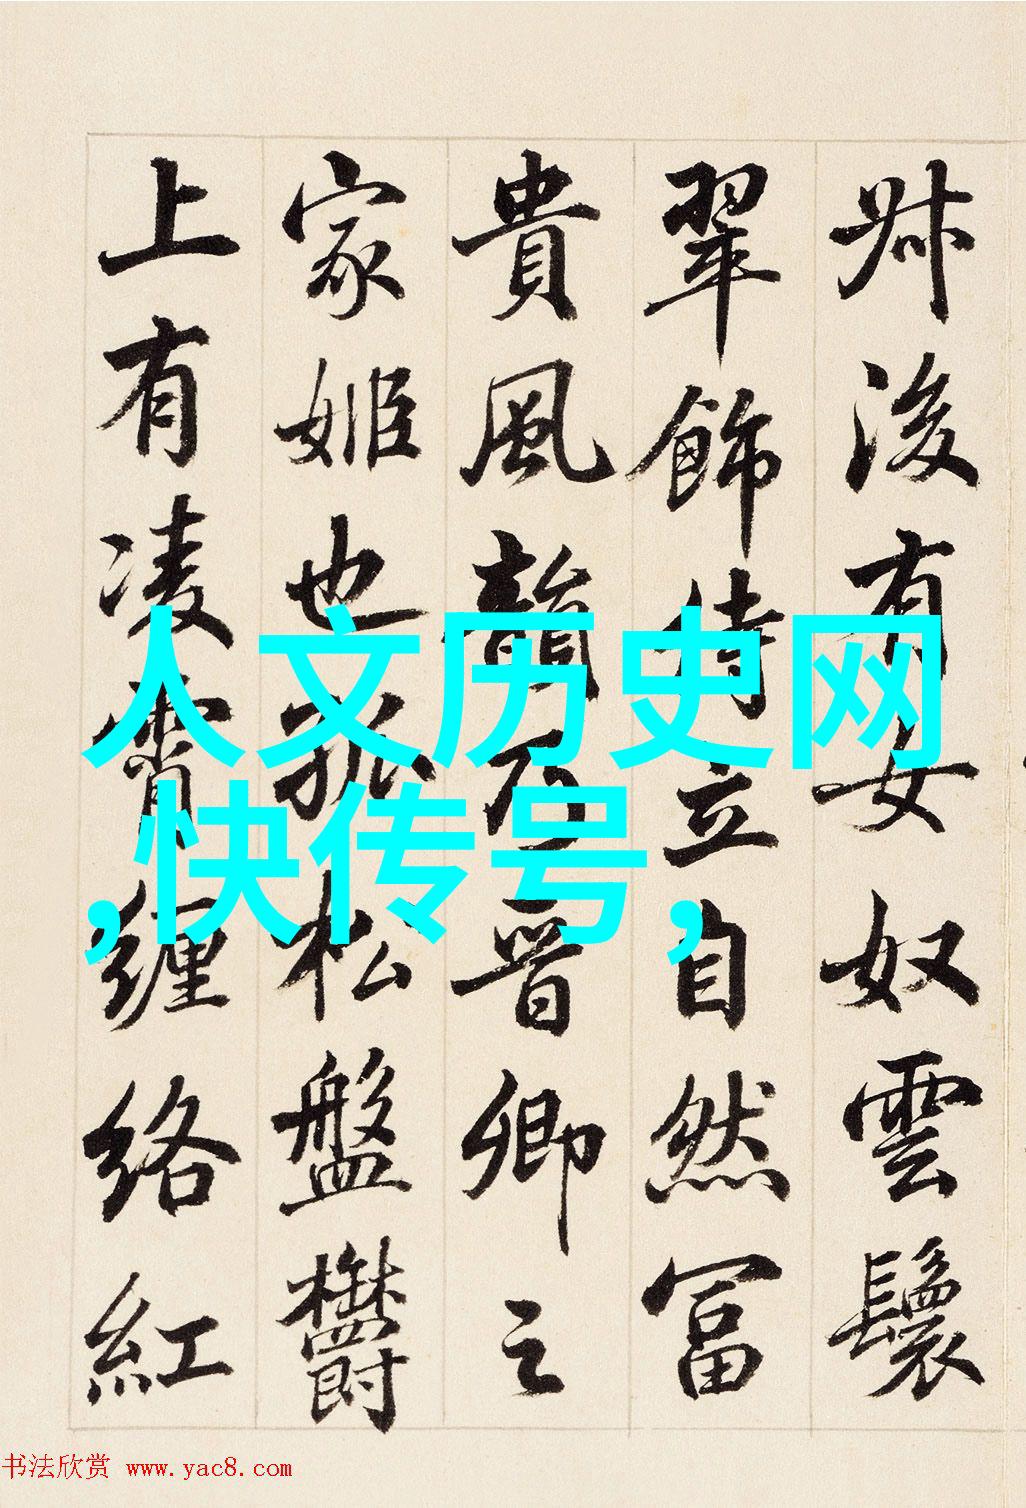 叔後有女奴雲鬟
翠飾侍立自然富
貴風韻乃晋卿之
家姬也孤松盤鬱
上有凌霄纏絡紅
人文历史网
,快传号,
书法欣赏 www.yac8.com